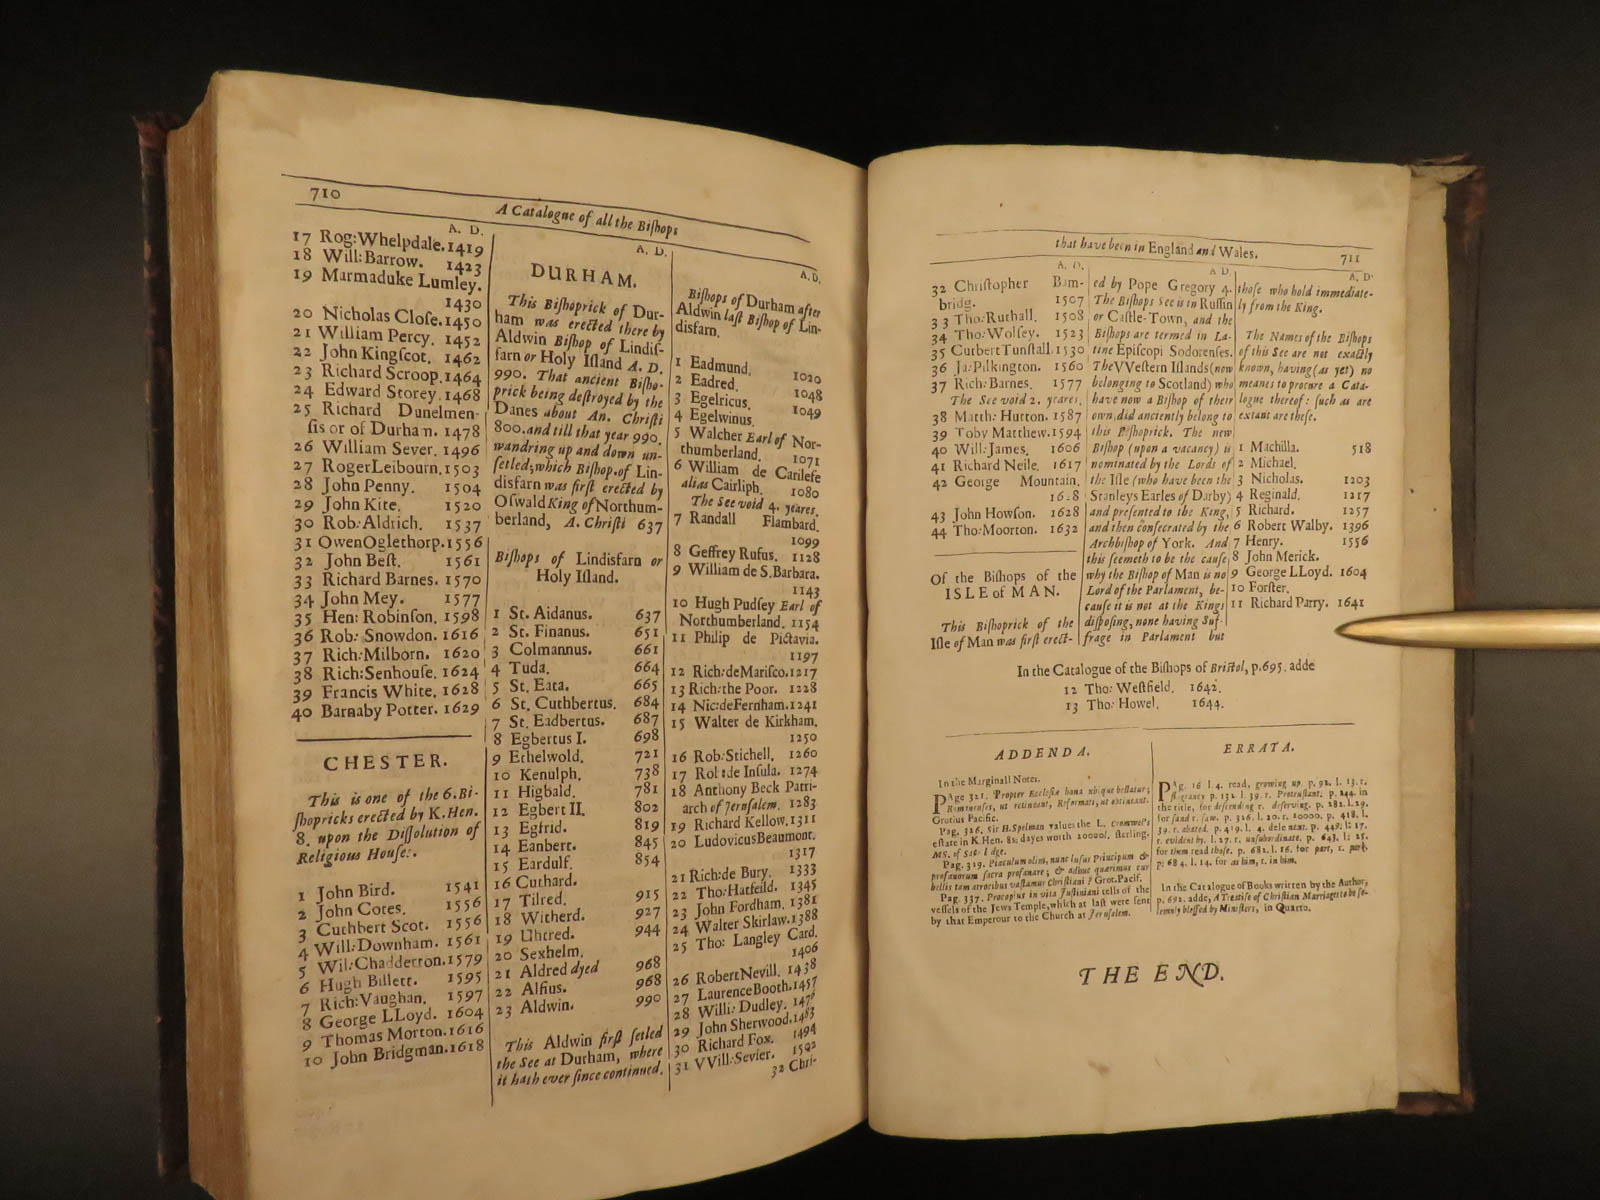 710
A Catalogue of all the Biſhops
A. D.
17 Rog: Whelpdale. 1419
18 Will: Barrow. 1423
19 Marmaduke Lumley.
1430
20 Nicholas Cloſe. 1450
21 William Percy. 1452
22 John Kingſcot. 1462
23 Richard Scroop. 1464
24 Edward Storey. 1468
25 Richard Dunelmen-
ſis or of Durham. 1478
26 William Sever. 1496
27 Roger Leibourn. 1503
28 John Penny. 1504
29 John Kite. 1520
30 Rob: Aldrich. 1537
31 Owen Oglethorp. 1556
32 John Beſt. 1561
33 Richard Barnes. 1570
34 John Mey. 1577
35 Hen: Robinſon. 1598
36 Rob: Snowdon. 1616
37 Rich: Milborn. 1620
38 Rich: Senhouſe. 1624
39 Francis White. 1628
40 Barnaby Potter. 1629
CHESTER.
This is one of the 6. Bi-
ſhopricks erected by K. Hen.
8. upon the Diſſolution of
Religious Houſe:.
1 John Bird. 1541
2 John Cotes. 1556
3 Cuthbert Scot. 1556
4 Will: Downham. 1561
5 Wil: Chadderton. 1579
6 Hugh Billett. 1595
7 Rich: Vaughan. 1597
8 George LLoyd. 1604
9 Thomas Morton. 1616
10 John Bridgman. 1618
A. D.
DURHAM.
This Biſhoprick of Dur-
ham was erected there by
Aldwin Biſhop of Lindiſ-
farn or Holy Iſland A. D.
990. That ancient Biſho-
prick being deſtroyed by the
Danes about An. Chriſti
800. and till that year 990.
wandring up and down un-
ſetled; which Biſhop. of Lin-
disfarn was firſt erected by
Oſwald King of Northum-
berland, A. Chriſti 637
Biſhops of Lindisfarn or
Holy Iſland.
1 St. Aidanus. 637
2 St. Finanus. 651
3 Colmannus. 661
4 Tuda. 664
5 St. Eata. 665
6 St. Cuthbertus. 684
7 St. Eadbertus. 687
8 Egbertus I. 698
9 Ethelwold. 721
10 Kenulph. 738
11 Higbald. 781
12 Egbert II. 802
13 Egfrid. 819
14 Eanbert. 845
15 Eardulf. 854
16 Cuthard.
17 Tilred. 915
18 Witherd. 927
19 Uhtred. 944
20 Sexhelm.
21 Aldred dyed 968
22 Alfius. 968
23 Aldwin. 990
This Aldwin firſt ſetled
the See at Durham, where
it hath ever ſince continued.
A. D.
Biſhops of Durham after
Aldwin laſt Biſhop of Lin-
disfarn.
1 Eadmund. 1020
2 Eadred. 1048
3 Egelricus. 1049
4 Egelwinus.
5 Walcher Earl of Nor-
thumberland. 1071
6 William de Carilefe
alias Cairliph. 1080
The See void 4. yeares.
7 Randall Flambard.
1099
8 Geffrey Rufus. 1128
9 William de S. Barbara.
1143
10 Hugh Pudſey Earl of
Northumberland. 1154
11 Philip de Pictavia.
1197
12 Rich: de Mariſco. 1217
13 Rich: the Poor. 1228
14 Nic: de Fernham. 1241
15 Walter de Kirkham.
1250
16 Rob: Stichell. 1260
17 Rob: de Inſula. 1274
18 Anthony Beck Patri-
arch of Jeruſalem. 1283
19 Richard Kellow. 1311
20 Ludovicus Beaumont.
1317
21 Rich: de Bury. 1333
22 Tho: Hatfeild. 1345
23 John Fordham. 1381
24 Walter Skirlaw. 1388
25 Tho: Langley Card.
1406
26 Robert Nevill. 1438
27 Laurence Booth. 1457
28 Willi: Dudley. 1476
29 John Sherwood. 1483
30 Richard Fox. 1494
31 VVill: Sevier. 1502
32 Chri-
that have been in England and Wales.
711
A. D.
32 Chriſtopher Bam-
bridg. 1507
33 Tho: Ruthall. 1508
34 Tho: Wolſey. 1523
35 Cutbert Tunſtall. 1530
36 Ja: Pilkington. 1560
37 Rich: Barnes. 1577
The See void 2. yeares.
38 Matth: Hutton. 1587
39 Toby Matthew. 1594
40 Will: James. 1606
41 Richard Neile. 1617
42 George Mountain.
1628
43 John Howſon. 1628
44 Tho: Moorton. 1632
Of the Biſhops of the
ISLE of MAN.
This Biſhoprick of the
Iſle of Man was firſt erect-
A D.
ed by Pope Gregory 4.
The Biſhops See is in Ruſſin
or Caſtle-Town, and the
Biſhops are termed in La-
tine Epiſcopi Sodorenſes.
The VVeſtern Iſlands (now
belonging to Scotland) who
have now a Biſhop of their
own, did anciently belong to
this Biſhoprick. The new
Biſhop (upon a vacancy) is
nominated by the Lords of
the Iſle (who have been the
Stanleys Earles of Darby)
and preſented to the King,
and then conſecrated by the
Archbiſhop of York. And
this ſeemeth to be the cauſe
why the Biſhop of Man is no
Lord of the Parlament, be-
cauſe it is not at the Kings
diſpoſing, none having Suf-
frage in Parlament but
A. D.
thoſe who hold immediate-
ly from the King.
The Names of the Biſhops
of this See are not exactly
known, having (as yet) no
meanes to procure a Cata-
logue thereof: ſuch as are
extant are theſe.
1 Machilla. 518
2 Michael.
3 Nicholas. 1203
4 Reginald. 1217
5 Richard. 1257
6 Robert Walby. 1396
7 Henry. 1556
8 John Merick.
9 George LLoyd. 1604
10 Forſter.
11 Richard Parry. 1641
In the Catalogue of the Biſhops of Briſtol, p. 695. adde
12 Tho: Weſtfield. 1642.
13 Tho: Howel. 1644.
ADDENDA.
In the Marginall Notes.
PAge 321. Propter Eccleſiæ bona ubique beſlatur;
Romanenſes, ut retineant, Reformati, ut obtineant.
Grotius Pacific.
Pag. 326. Sir H. Spelman values the L. Cromwel's
eſtate in K. Hen. 8s dayes worth 20000l. ſterling.
Pag. 329. Piaculum olim, nunc luſus Principum &
profanorum ſacra profanare; & adhuc quærimus cur
bellis tam atrocibus vaſtamur Chriſtiani? Grot. Pacif.
Pag. 337. Procopius in vita Juſtiniani tells of the
veſſels of the Jews Temple, which at laſt were ſent
by that Emperour to the Church at Jeruſalem.
ERRATA.
PAg. 16 l. 4. read, growing up p. 92. l. 13. r.
flagrancy p. 132 l. 39. r. Proteſtant. p. 244. in
the title, for defending r. deſerving. p. 282. l. 29.
for ſand r. ſaw. p. 326. l. 20. r. 20000. p. 418. l.
39. r. abated. p. 419. l. 4. dele next. p. 448. l. 17.
r. evident by. l. 27. r. unſubordinate. p. 643. l. 25.
for them read thoſe. p. 682. l. 16. for part, r. park.
p. 684. l. 14. for as him, r. in him.
In the Catalogue of Books written by the Author,
p. 692. adde, A Treatiſe of Chriſtian Marriage to be ſo-
lemnly bleſſed by Miniſters, in Quarto.
THE END.